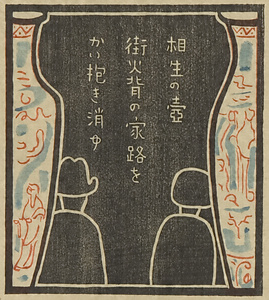 相生の壺
街火背の家路を
かい抱き消ゆ